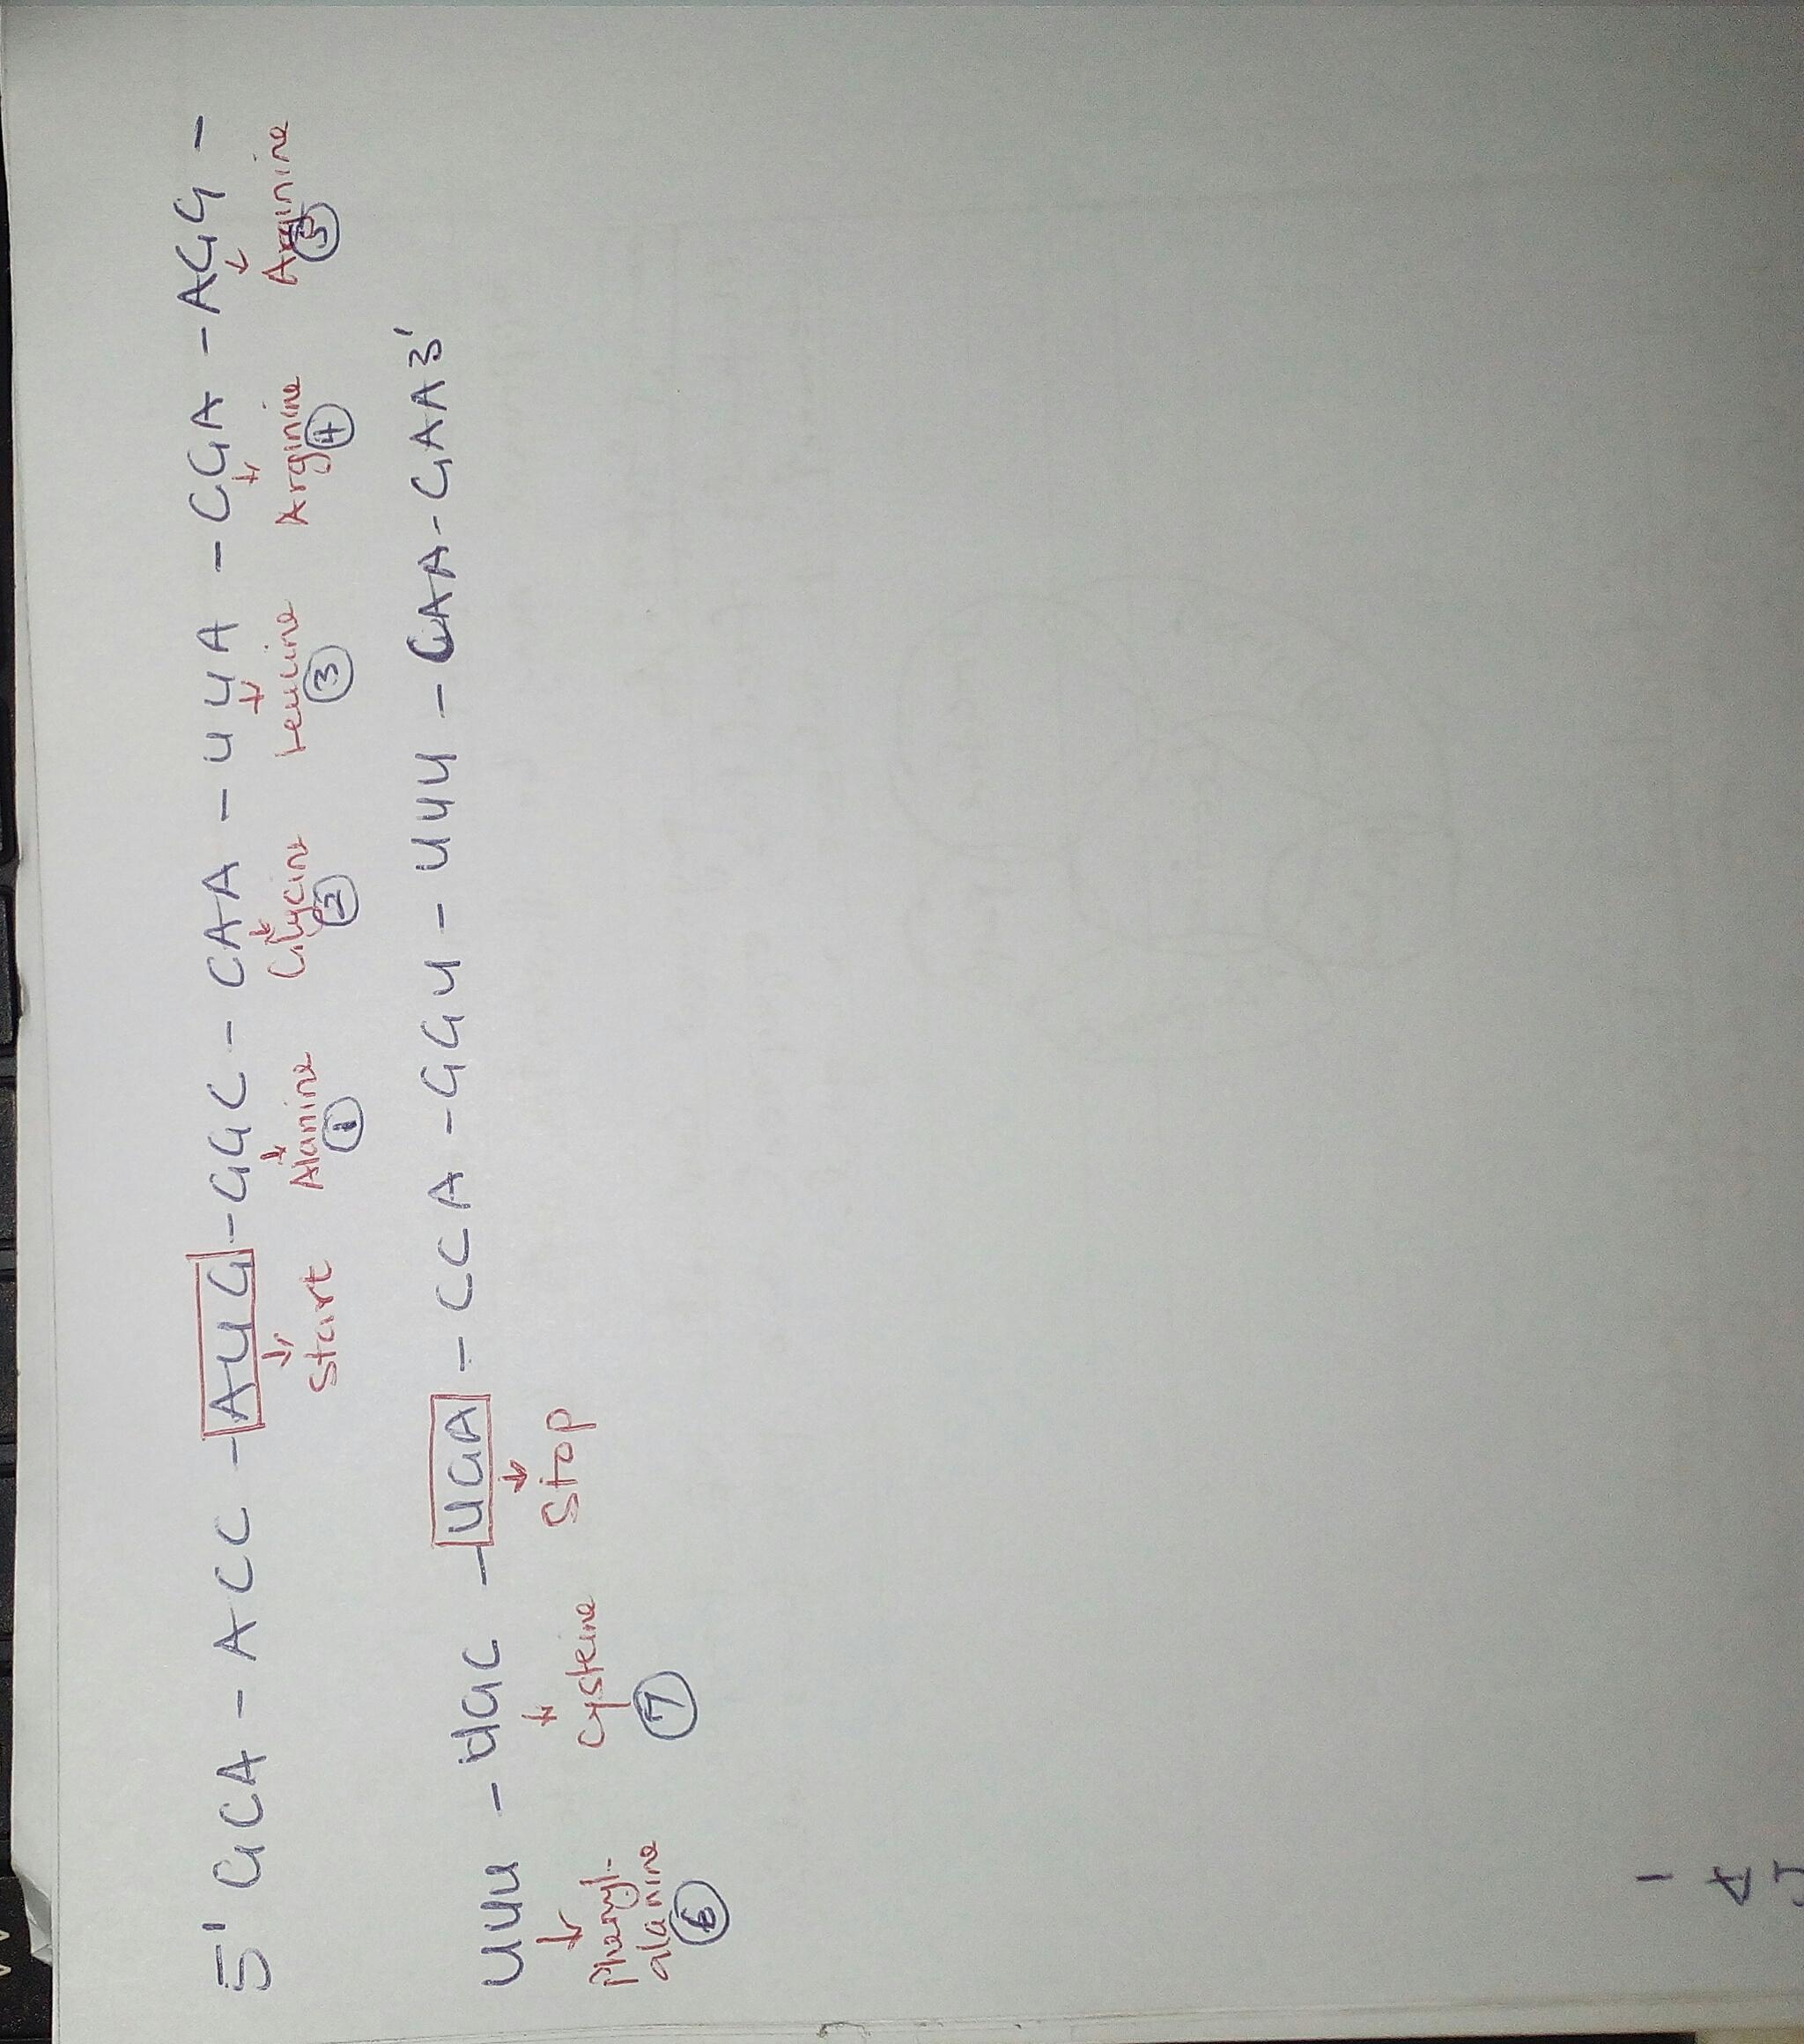 5' GCA - ACC - AUG - GGC - CAA - UUA - CGA - AGG -
↓ Start ↓ Alanine ↓ Glycine ↓ Leucine ↓ Arginine ↓ Arginine
1 2 3 4 5
UUU - UGC - UGA - CCA - GGU - UUU - GAA - GAA 3'
↓ Phenyl- ↓ Cysteine ↓ Stop
alanine
6 7